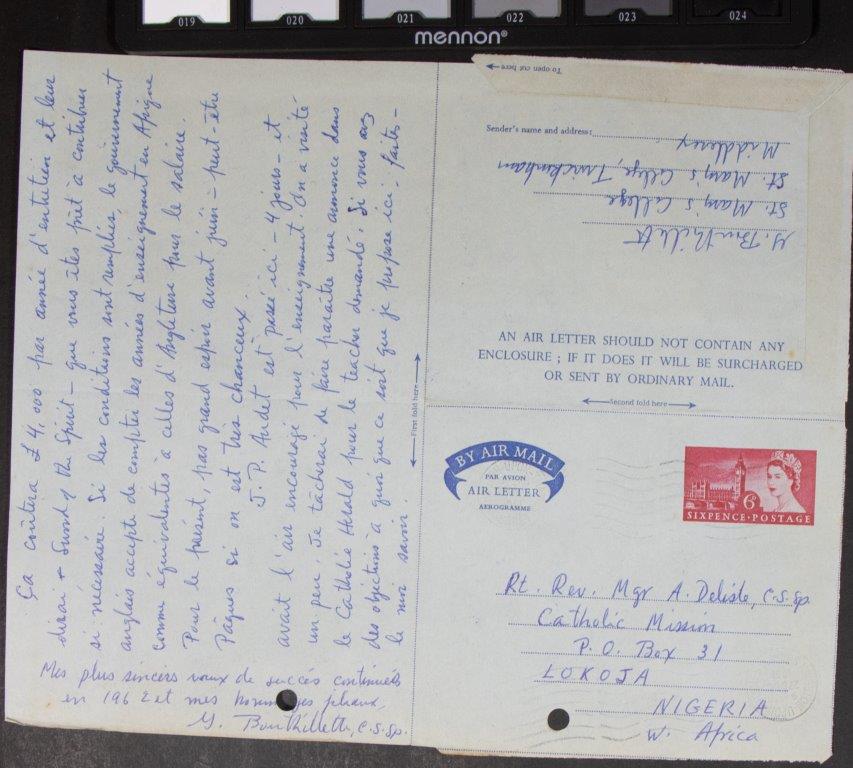 019 020 021 022 023 024
mennon®
Ça coûtera £4,000 par année d'entretien et leur
dirai "Sword of the Spirit" que vous êtes prêt à contribuer
si nécessaire. Si les conditions sont remplies, le gouvernement
anglais accepte de compter les années d'enseignement en Afrique
comme équivalentes à celles d'Angleterre pour le salaire.
Pour le présent, pas grand espoir avant juin - peut-être
Pâques si on est très chanceux.
J. P. Audet est passé ici - 4 jours - et
avait l'air encouragé pour l'enseignement. On a visité
un peu. Je tâcherai de faire paraître une annonce dans
le Catholic Herald pour le teacher demandé. Si vous avez
des objections à quoi que ce soit que je propose ici, faites-
le moi savoir.
Mes plus sincères vœux de succès continuels
en 1962 et mes hommages filiaux,
G. Bouthillette, C.S.Sp.
First fold here
To open cut here
Sender's name and address:
G. Bouthillette
St. Mary's College
St. Mary's College, Twickenham
Middlesex
AN AIR LETTER SHOULD NOT CONTAIN ANY
ENCLOSURE ; IF IT DOES IT WILL BE SURCHARGED
OR SENT BY ORDINARY MAIL.
Second fold here
BY AIR MAIL
PAR AVION
AIR LETTER
AEROGRAMME
6D
SIXPENCE·POSTAGE
Rt. Rev. Mgr A. Delisle, C.S.Sp.
Catholic Mission
P. O. Box 31
LOKOJA
NIGERIA
W. Africa